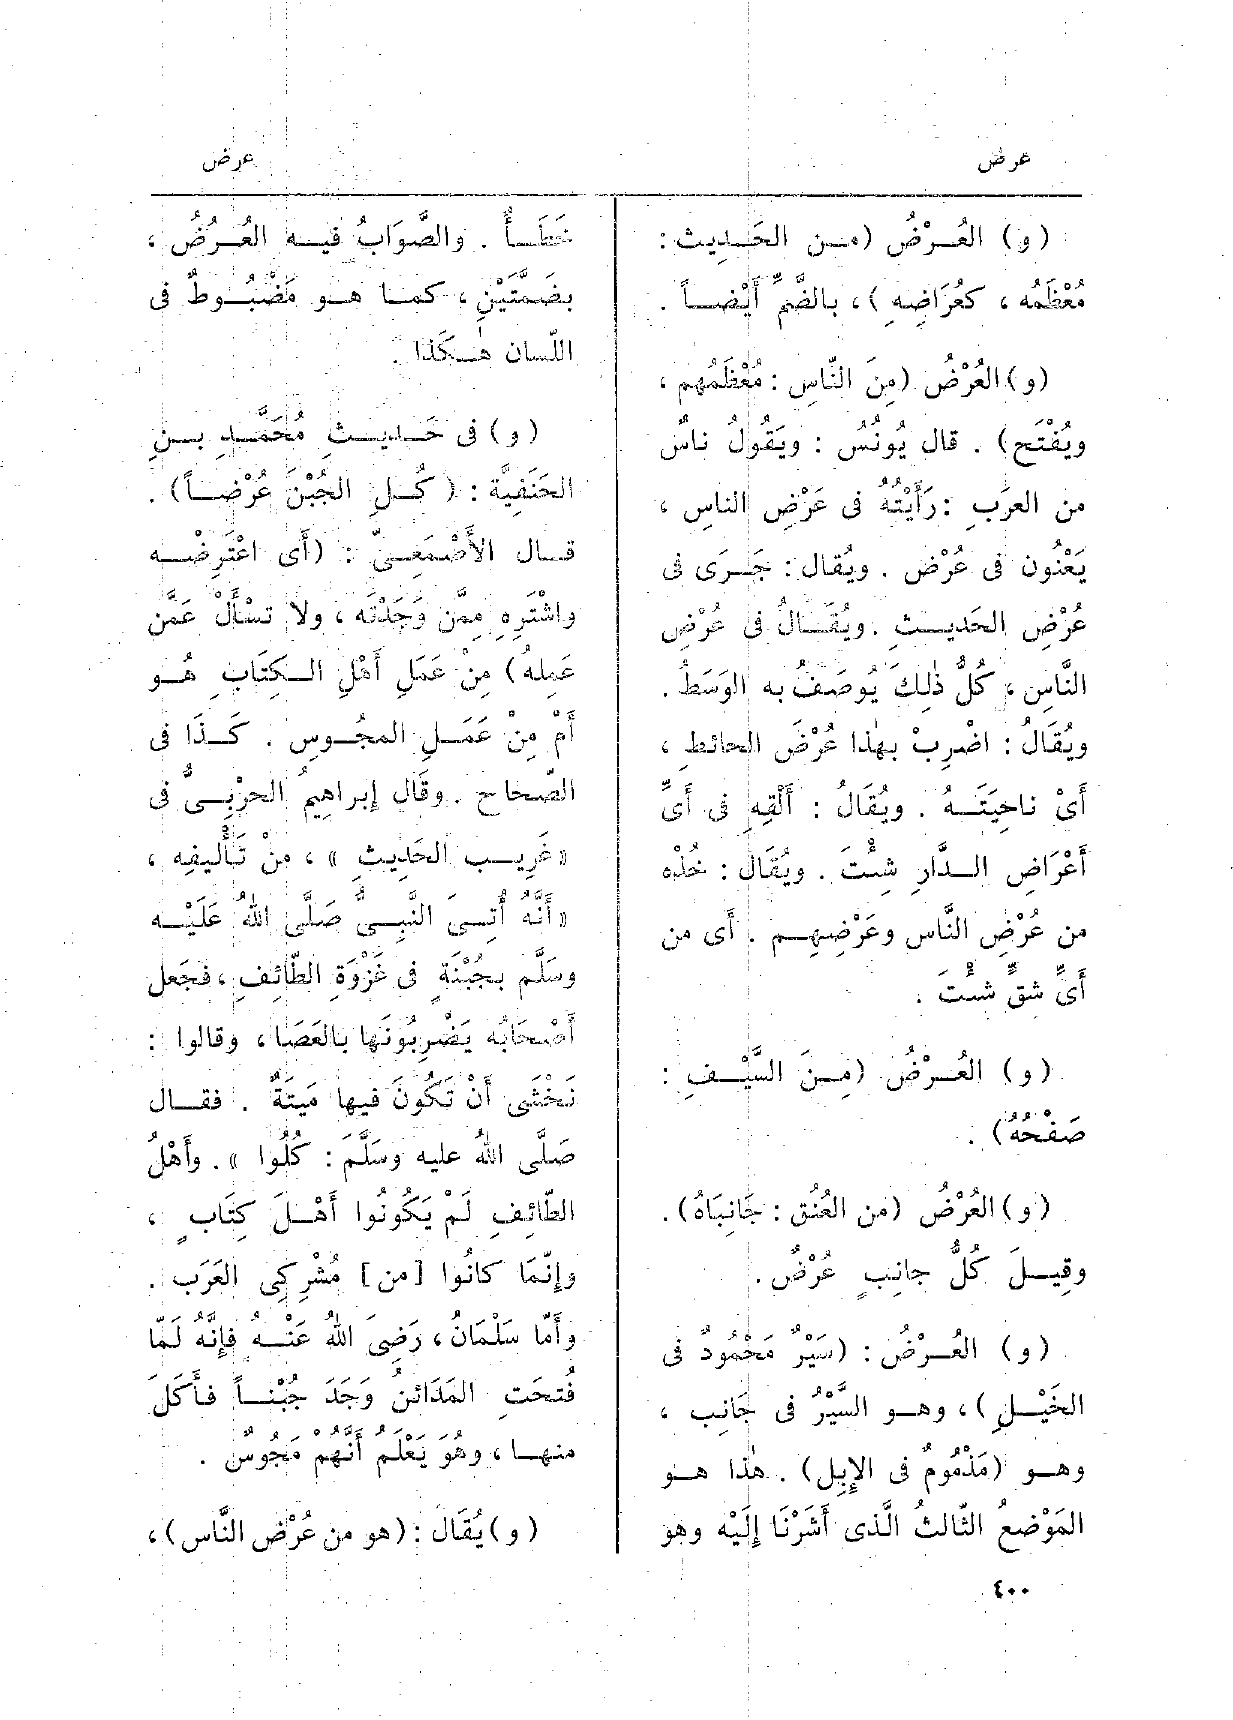 عرض
عرض
(و) العُـرْضُ (مـن الحَـدِيث :
مُعْظَمُه ، كعُرَاضِهِ) ، بالضَّمِّ أَيْضـاً .
(و) العُرْضُ (مِنَ النّاسِ : مُعْظَمُهم ،
ويُفْتَح) . قال يُونُسُ : ويَقُولُ ناسٌ
من العرَبِ : رَأَيْتُهُ فى عَرْضِ الناسِ ،
يَعْنُون فى عُرْض . ويُقال : جَـرَى فى
عُرْضِ الحَديـثِ . ويُقَـالُ فى عُرْضِ
النَّاسِ ، كُلُّ ذٰلِكَ يُوصَفُ به الوَسَطُ .
ويُقَالُ : اضْرِبْ بهٰذا عُرْضَ الحائطِ ،
أَىْ ناحِيَتَـهُ . ويُقَالُ : أَلْقِهِ فى أَىِّ
أَعْرَاضِ الـدَّارِ شِئْتَ . ويُقَال : خُذْه
من عُرْضِ النَّاس وعَرْضِهِـم . أَى من
أَىِّ شِقٍّ شئْتَ .
(و) العُـرْضُ (مِـنَ السَّيْـفِ :
صَفْحُهُ) .
(و) العُرْضُ (من العُنُق : جَانِبَاهُ) .
وقِيـلَ كُلُّ جانِبٍ عُرْضٌ .
(و) العُـرْضُ : (سَيْرٌ مَحْمُودٌ فى
الخَيْـلِ) ، وهـو السَّيْرُ فى جَانِب ،
وهـو (مَذْمُومٌ فى الإِبِل) . هٰذا هـو
المَوْضعُ الثّالثُ الَّذى أَشَرْنَا إِلَيْه وهو
خَطَـأٌ . والصَّوَابُ فيـه العُـرُضُ ،
بضَمَّتَيْنِ ، كمـا هـو مَضْبُـوطٌ فى
اللّسان هٰـكَذا .
(و) فى حَـدِيـثِ مُحَمَّـدِ بـنِ
الحَنَفِيَّة : (كُـلِ الجُبْنَ عُرْضـاً) .
قـال الأَصْمَعِـىّ : (أَى اعْتَرِضْـه
واشْتَرِهِ مِمَّن وَجَدْتَه ، ولا تسْأَلْ عَمَّن
عَمِلَهُ) مِنْ عَمَلِ أَهْلِ الـكِتَابِ هُـو
أَمْ مِنْ عَمَـلِ المجُـوسِ . كَـذَا فى
الصّحاح . وقَال إبراهِيمُ الحرْبِـىُّ فى
«غَرِيـب الحَدِيثِ» ، منْ تَأْلِيفِه ،
«أَنَّهُ أُتِـىَ النَّبِـىُّ صَلَّى اللهُ عَلَيْـه
وسَلَّم بجُبْنَةٍ فى غَزْوَةِ الطّائِفِ ، فجَعل
أَصْحَابُه يَضْرِبُونَها بالعَصَا ، وقالوا :
نَخْشَى أَنْ تَكُونَ فيها مَيتَةٌ . فقـال
صَلَّى اللهُ عليه وسَلَّمَ : كُلُوا» . وأَهْلُ
الطّائِفِ لَمْ يَكُونُوا أَهْـلَ كِتَابٍ ،
وإِنَّمَا كانُوا [من] مُشْرِكِى العَرَب .
وأَمّا سَلْمَانُ ، رَضِىَ اللهُ عَنْـهُ فإِنَّه لَمّا
فُتحَتِ المَدَائنُ وَجَدَ جُبْنـاً فـأَكَلَ
منهـا ، وهُوَ يَعْلَم أَنَّهُم مَجُوسٌ .
(و) يُقَالُ : (هو من عُرْض النَّاس) ،
٤٠٠